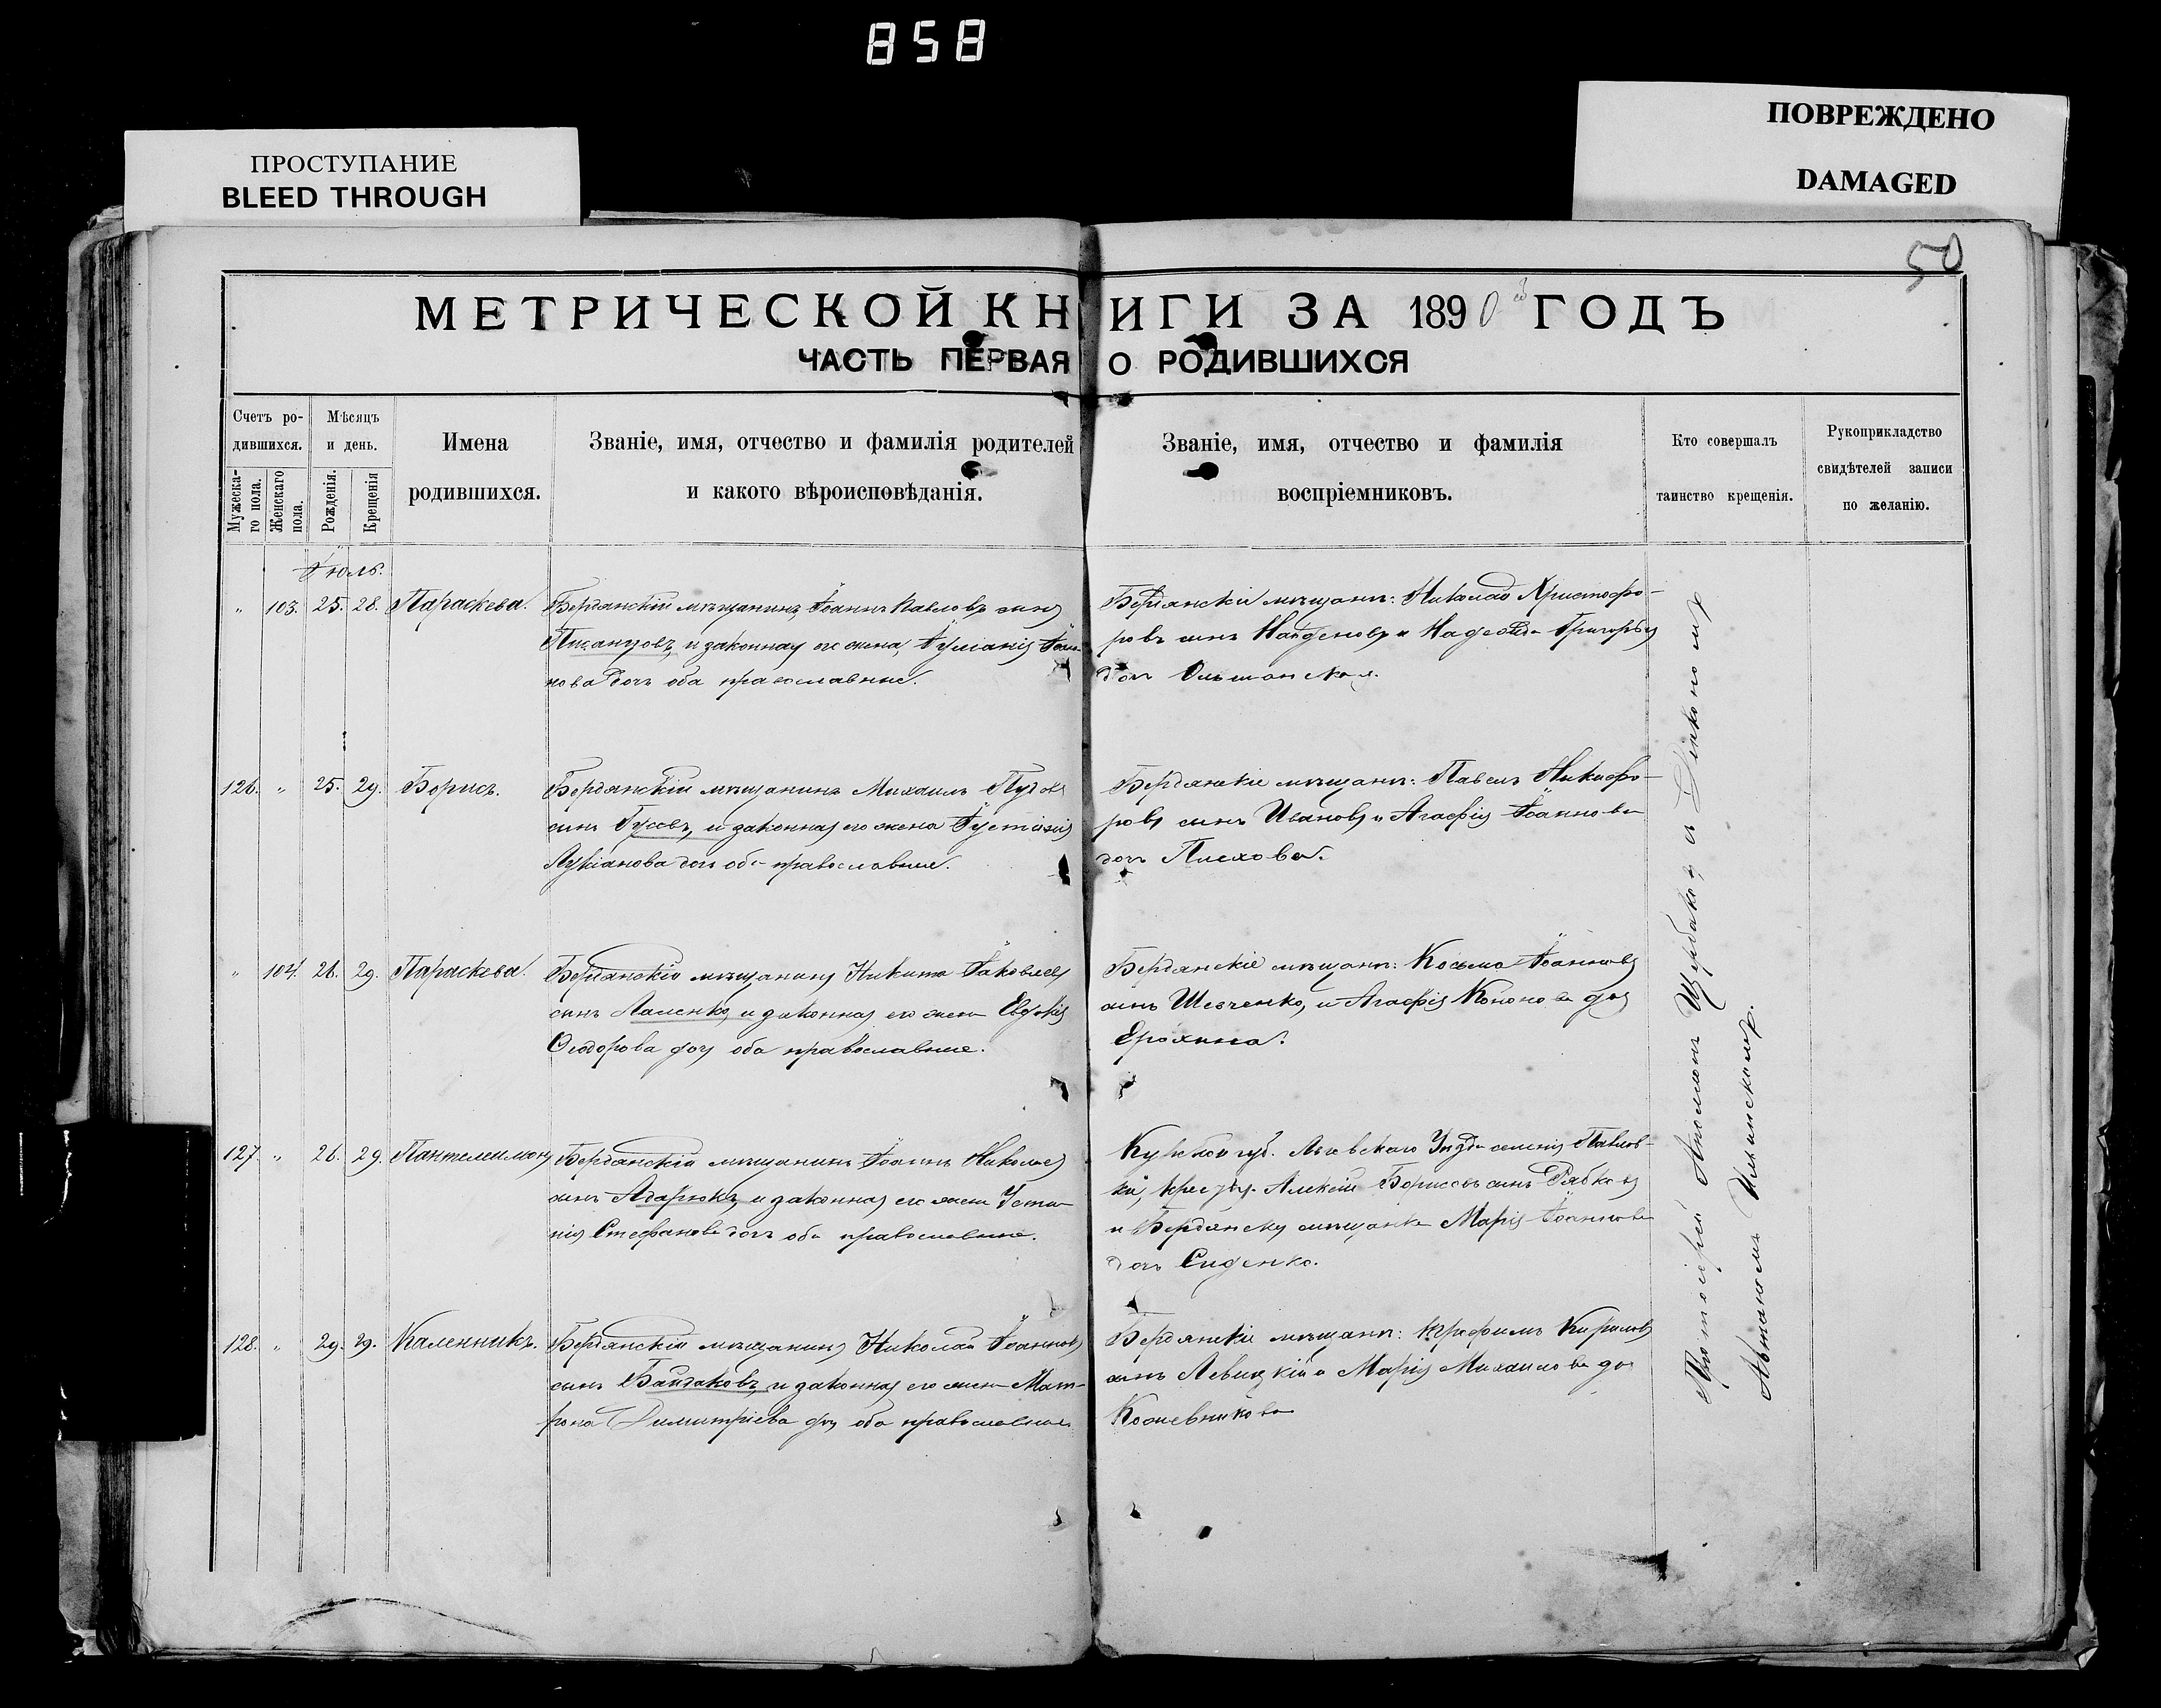 858
ПРОСТУПАНИЕ
BLEED THROUGH
ПОВРЕЖДЕНО
DAMAGED
50
МЕТРИЧЕСКОЙ КНИГИ ЗА 1890 ГОДЪ
ЧАСТЬ ПЕРВАЯ О РОДИВШИХСЯ
Счетъ ро-
дившихся.
Мужеска-
го пола.
Женскаго
пола.
Мѣсяцъ
и день.
Рожденія.
Крещенія
Имена
родившихся.
Званіе, имя, отчество и фамилія родителей
и какого вѣроисповѣданія.
Званіе, имя, отчество и фамилія
воспріемниковъ.
Кто совершалъ
таинство крещенія.
Рукоприкладство
свидѣтелей записи
по желанію.
Іюль.
" 103. 25. 28. Параскева.
Бердянскій мѣщанинъ Іоаннъ Павловъ сынъ
и законная его жена
нова дочь оба православные.
Бердянскіе мѣщане: Николай Христофо-
ровъ сынъ Найденовъ и Надежда Григорьева
дочь Ольшанская.
126. " 25. 29. Борисъ.
Бердянскій мѣщанинъ Михаилъ
сынъ Гусевъ, и законная его жена Іустинія
Лукіанова дочь оба православные.
Бердянскіе мѣщане: Павелъ Никифо-
ровъ сынъ Ивановъ и Агафія Іоаннова
дочь Плехова.
" 104. 26. 29. Параскева.
Бердянскій мѣщанинъ Никита Іаковлевъ
сынъ и законная его жена Евдокія
Ѳеодорова дочь оба православные.
Бердянскіе мѣщане: Косьма Іоанновъ
сынъ Шевченко, и Агафія Кононова дочь
Ерохина.
127. " 26. 29. Пантелеимонъ
Бердянскій мѣщанинъ Іоаннъ Николаевъ
сынъ и законная его жена Усти-
нія Стефанова дочь оба православные.
Курской губ. Льговскаго Уѣзда селенія Павлов-
ки, Алексій Борисовъ сынъ Рябковъ
и Бердянская мѣщанка Марія Іоаннова
дочь Сиденко.
128. " 29. 29. Каленникъ.
Бердянскій мѣщанинъ Николай Іоанновъ
сынъ Байдаковъ, и законная его жена Мат-
рона Димитріева дочь оба православные
Бердянскіе мѣщане: Кириловъ
сынъ Левицкій и Марія Михаилова дочь
Кожевникова
Протоіерей Щербаковъ съ Діакономъ
Ильинскимъ.